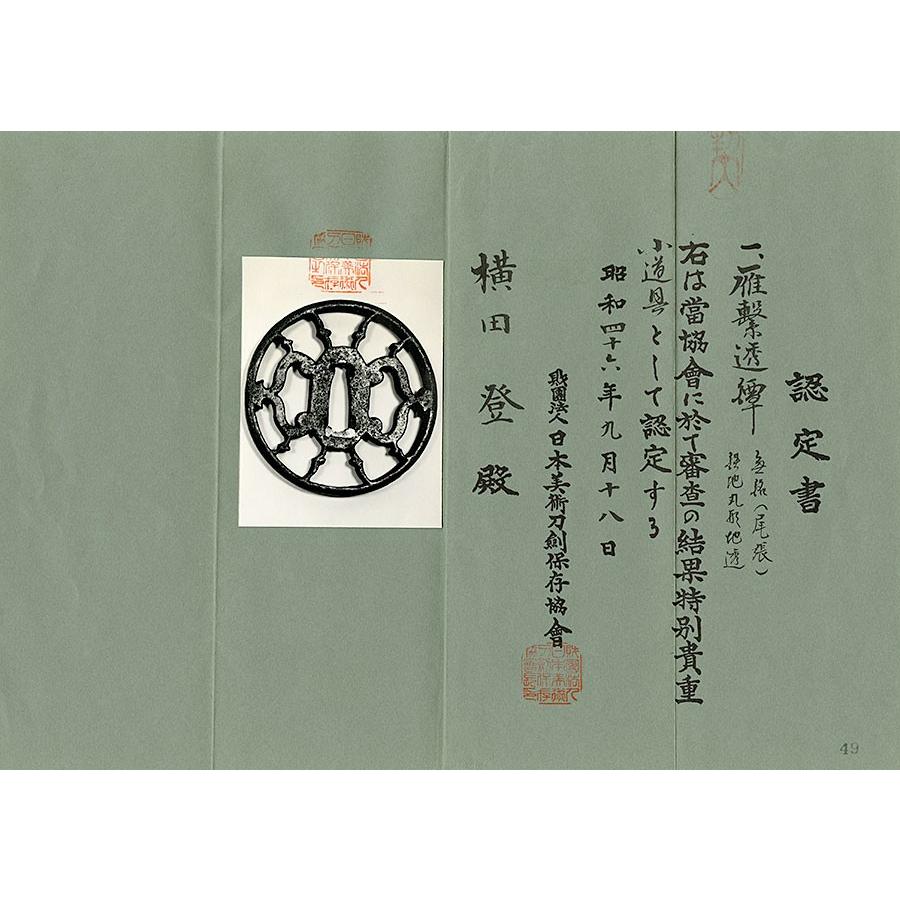 認定書
二雁繋透鐔
無銘(尾張)
鉄地丸形地透
右は當協會に於て審査の結果特別貴重
小道具として認定する
昭和四十六年九月十八日
財團法人日本美術刀劍保存協會
横田登殿
49